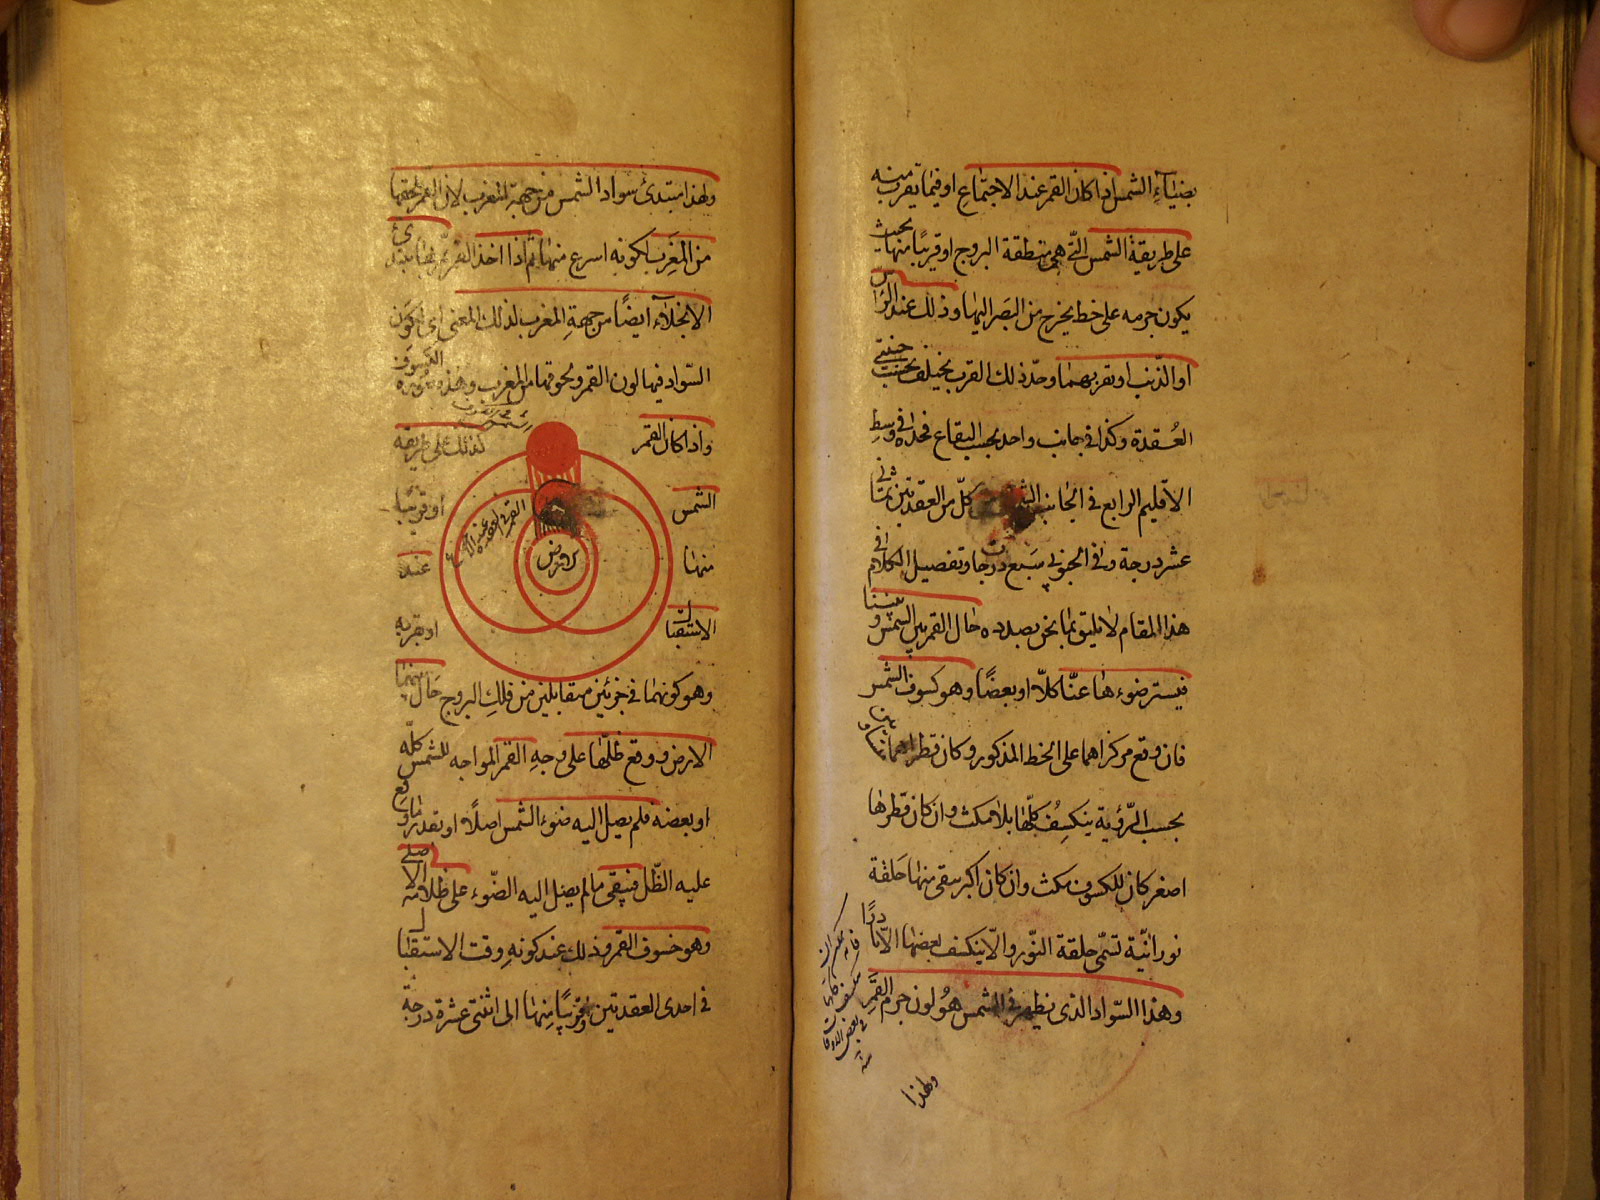 بضياء الشمس اذا كان القمر عند الاجتماع او فيما يقرب منه
على طريقة الشمس التي هي منطقة البروج او قريبًا منها بحيث
يكون جرمه على خط يخرج من البصر اليها وذلك عند الراس
او الذنب او بقربهما وحدّ ذلك القرب يختلف بحسب جنبتي
العُقدة وكذا في جانب واحد بحسب البقاع فحده في وسط
الاقليم الرابع في الجانب كلّ من العقدتين ثماني
عشر درجة وفي الجنوبي سَبع درجات وتفصيل الكلام في
هذا المقام لا يليق بما نحن بصدده حال القمر بين الشمس وبيننا
فيستر ضوءها عنّا كلّا او بعضًا وهو كسوف الشمس
فان وقع مركزاهما على الخط المذكور وكان قطراهما متساويين
بحسب الرّؤية ينكسف كلّها بلا مكث وان كان قطرها
اصغر كان للكسوف مكث وان كان اكبر يبقى منها حَلقة
نورانيّة تسمّى حلقة النّور والّا ينكسف بعضها الّا نادرًا
وهذا السّواد الذى يظهر في الشمس هُو لون جرم القمَر
ولهذا
ولهذا يبتدئ سواد الشمس من جهة المغرب لان القمر يلحقها
من المغَرب لكونه اسرع منها ثم اذا اخذ القمر يبتدئ
الانجلاء ايضًا من جهةِ المغرب لذلك المعنى اى لكَون
السّواد فيها لون القمر ولحوقها من المغرب وهذه صورة الكسوف
واذا كان القمر كذلك على طريقة
الشمس او قريبًا
منها عند
الاستقبال او بقربه
الارض
وهو كونهما في جزئين متقابلين من فلك البروج حَال بينهما
الارض ووقع ظلّها على وجهِ القمر المواجه للشمس كلّه
او بعضه فلم يصل اليه ضوء الشمس اصلًا او بقدر ما وقع
عليه الظّل فيبقى ما لم يصل اليه الضّوء على ظلامه الاصلي
وهو خسوف القمر وذلك عند كونهِ وقت الاستقبال
في احدى العقدتين وقريبًا منها الى اثنتى عشرة درجة